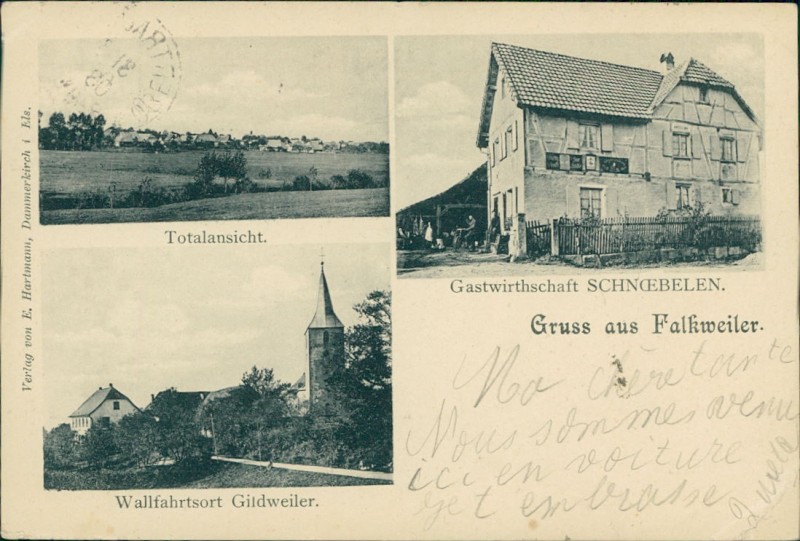 Verlag von E. Hartmann, Dammerkirch i Els.
Totalansicht.
Gastwirthschaft SCHNŒBELEN.
Gruss aus Falkweiler.
Wallfahrtsort Gildweiler.
Ma chère tante
Nous sommes venu
ici en voiture
Je t embrasse